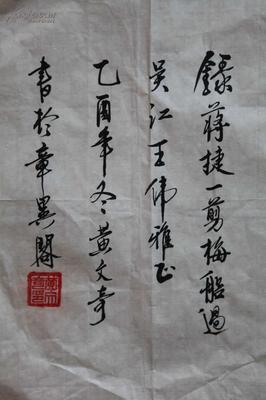 錄蔣捷一剪梅船過
吴江王伟雅正
乙酉年冬黄文奇
書於章異閣